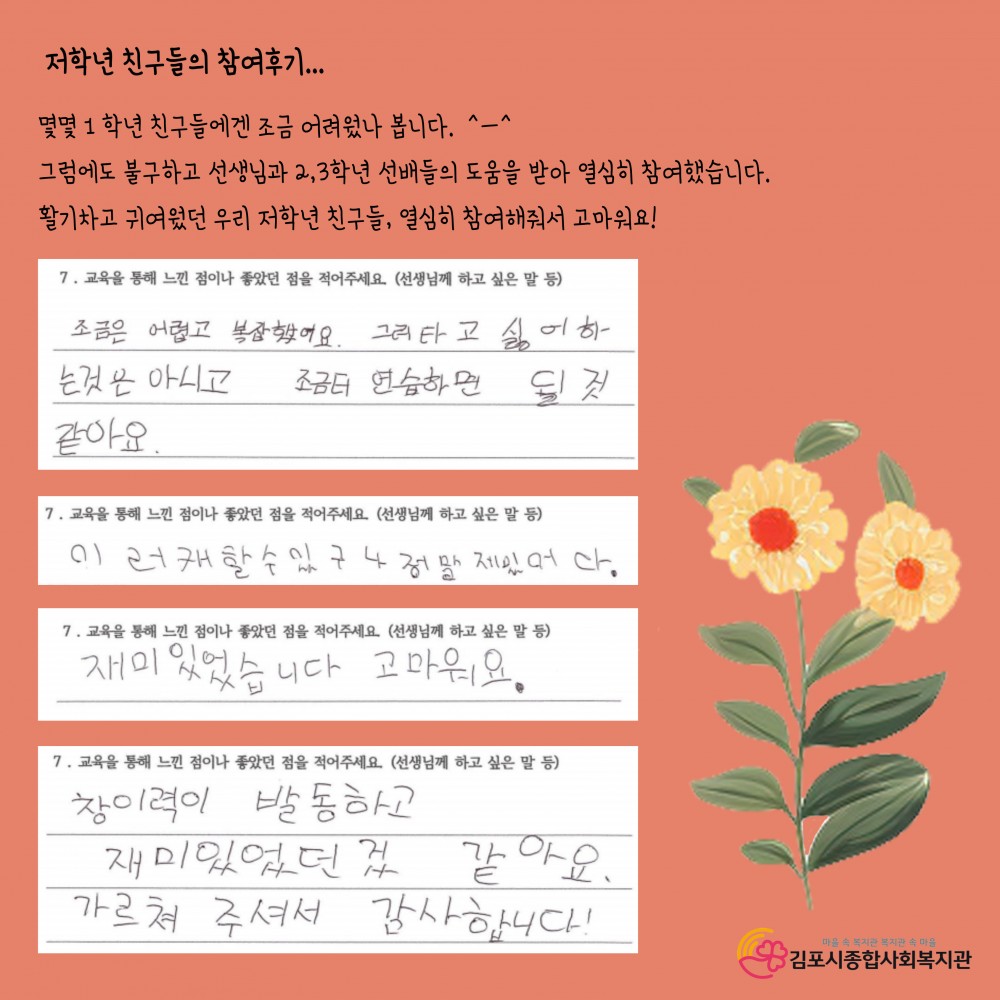 저학년 친구들의 참여후기...
몇몇 1학년 친구들에겐 조금 어려웠나 봅니다. ^-^
그럼에도 불구하고 선생님과 2,3학년 선배들의 도움을 받아 열심히 참여했습니다.
활기차고 귀여웠던 우리 저학년 친구들, 열심히 참여해줘서 고마워요!
7. 교육을 통해 느낀 점이나 좋았던 점을 적어주세요. (선생님께 하고 싶은 말 등)
조금은 어렵고 복잡했어요. 그러타고 싫어하
는것은 아시고 조금터 연습하면 될것
같아요.
7. 교육을 통해 느낀 점이나 좋았던 점을 적어주세요. (선생님께 하고 싶은 말 등)
이러캐할수있구나 정말 제밌어다.
7. 교육을 통해 느낀 점이나 좋았던 점을 적어주세요. (선생님께 하고 싶은 말 등)
재미있었습니다 고마워요.
7. 교육을 통해 느낀 점이나 좋았던 점을 적어주세요. (선생님께 하고 싶은 말 등)
창이력이 발동하고
재미있었던겄 같아요.
가르쳐 주셔서 감사합니다!
마을 속 복지관 복지관 속 마을
김포시종합사회복지관